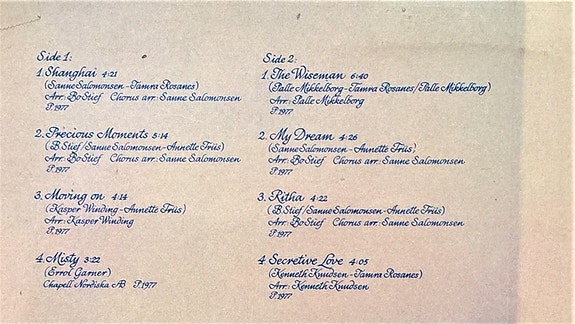 Side 1:
1. Shanghai 4:21
(Sanne Salomonsen - Tamra Rosanes)
Arr: Bo Stief Chorus arr: Sanne Salomonsen
P.1977
2. Precious Moments 5:14
(B. Stief/Sanne Salomonsen - Annette Friis)
Arr: Bo Stief Chorus arr: Sanne Salomonsen
P.1977
3. Moving on 4:14
(Kasper Winding - Annette Friis)
Arr: Kasper Winding
P.1977
4. Misty 3:22
(Errol Garner)
Chapell Nordiska AB P.1977
Side 2:
1. The Wiseman 6:40
(Palle Mikkelborg - Tamra Rosanes/Palle Mikkelborg)
Arr: Palle Mikkelborg
P.1977
2. My Dream 4:26
(Sanne Salomonsen - Annette Friis)
Arr: Bo Stief Chorus arr: Sanne Salomonsen
P.1977
3. Ritha 4:22
(B. Stief/Sanne Salomonsen - Annette Friis)
Arr: Bo Stief Chorus arr: Sanne Salomonsen
P.1977
4. Secretive Love 4:05
(Kenneth Knudsen - Tamra Rosanes)
Arr: Kenneth Knudsen
P.1977